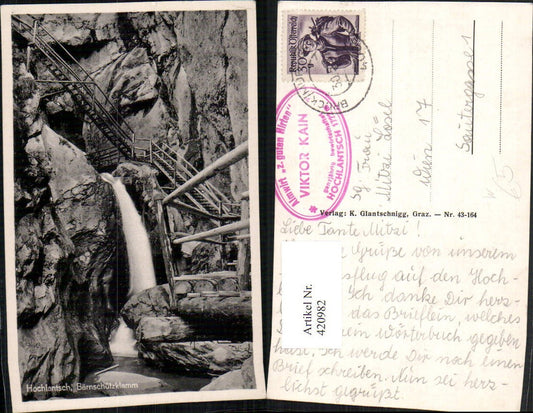 Hochlantsch, Bärnschützklamm
Republik Österreich
30
Almwirt „z. guten Hirten"
VIKTOR KAIN
HOCHLANTSCH 1720
Sg. Frau
Mitzi
Wien 17
Verlag: K. Glantschnigg, Graz. — Nr. 43-164
Liebe Tante Mitzi!
Grüße von unserem
sflug auf den Hoch-
Ich danke Dir herz-
das Brieflein, welches
ein Wörterbuch gegeben
Ich werde Dir noch einen
Brief schreiben. Nun sei herz-
lichst gegrüßt.
Artikel Nr.
420982